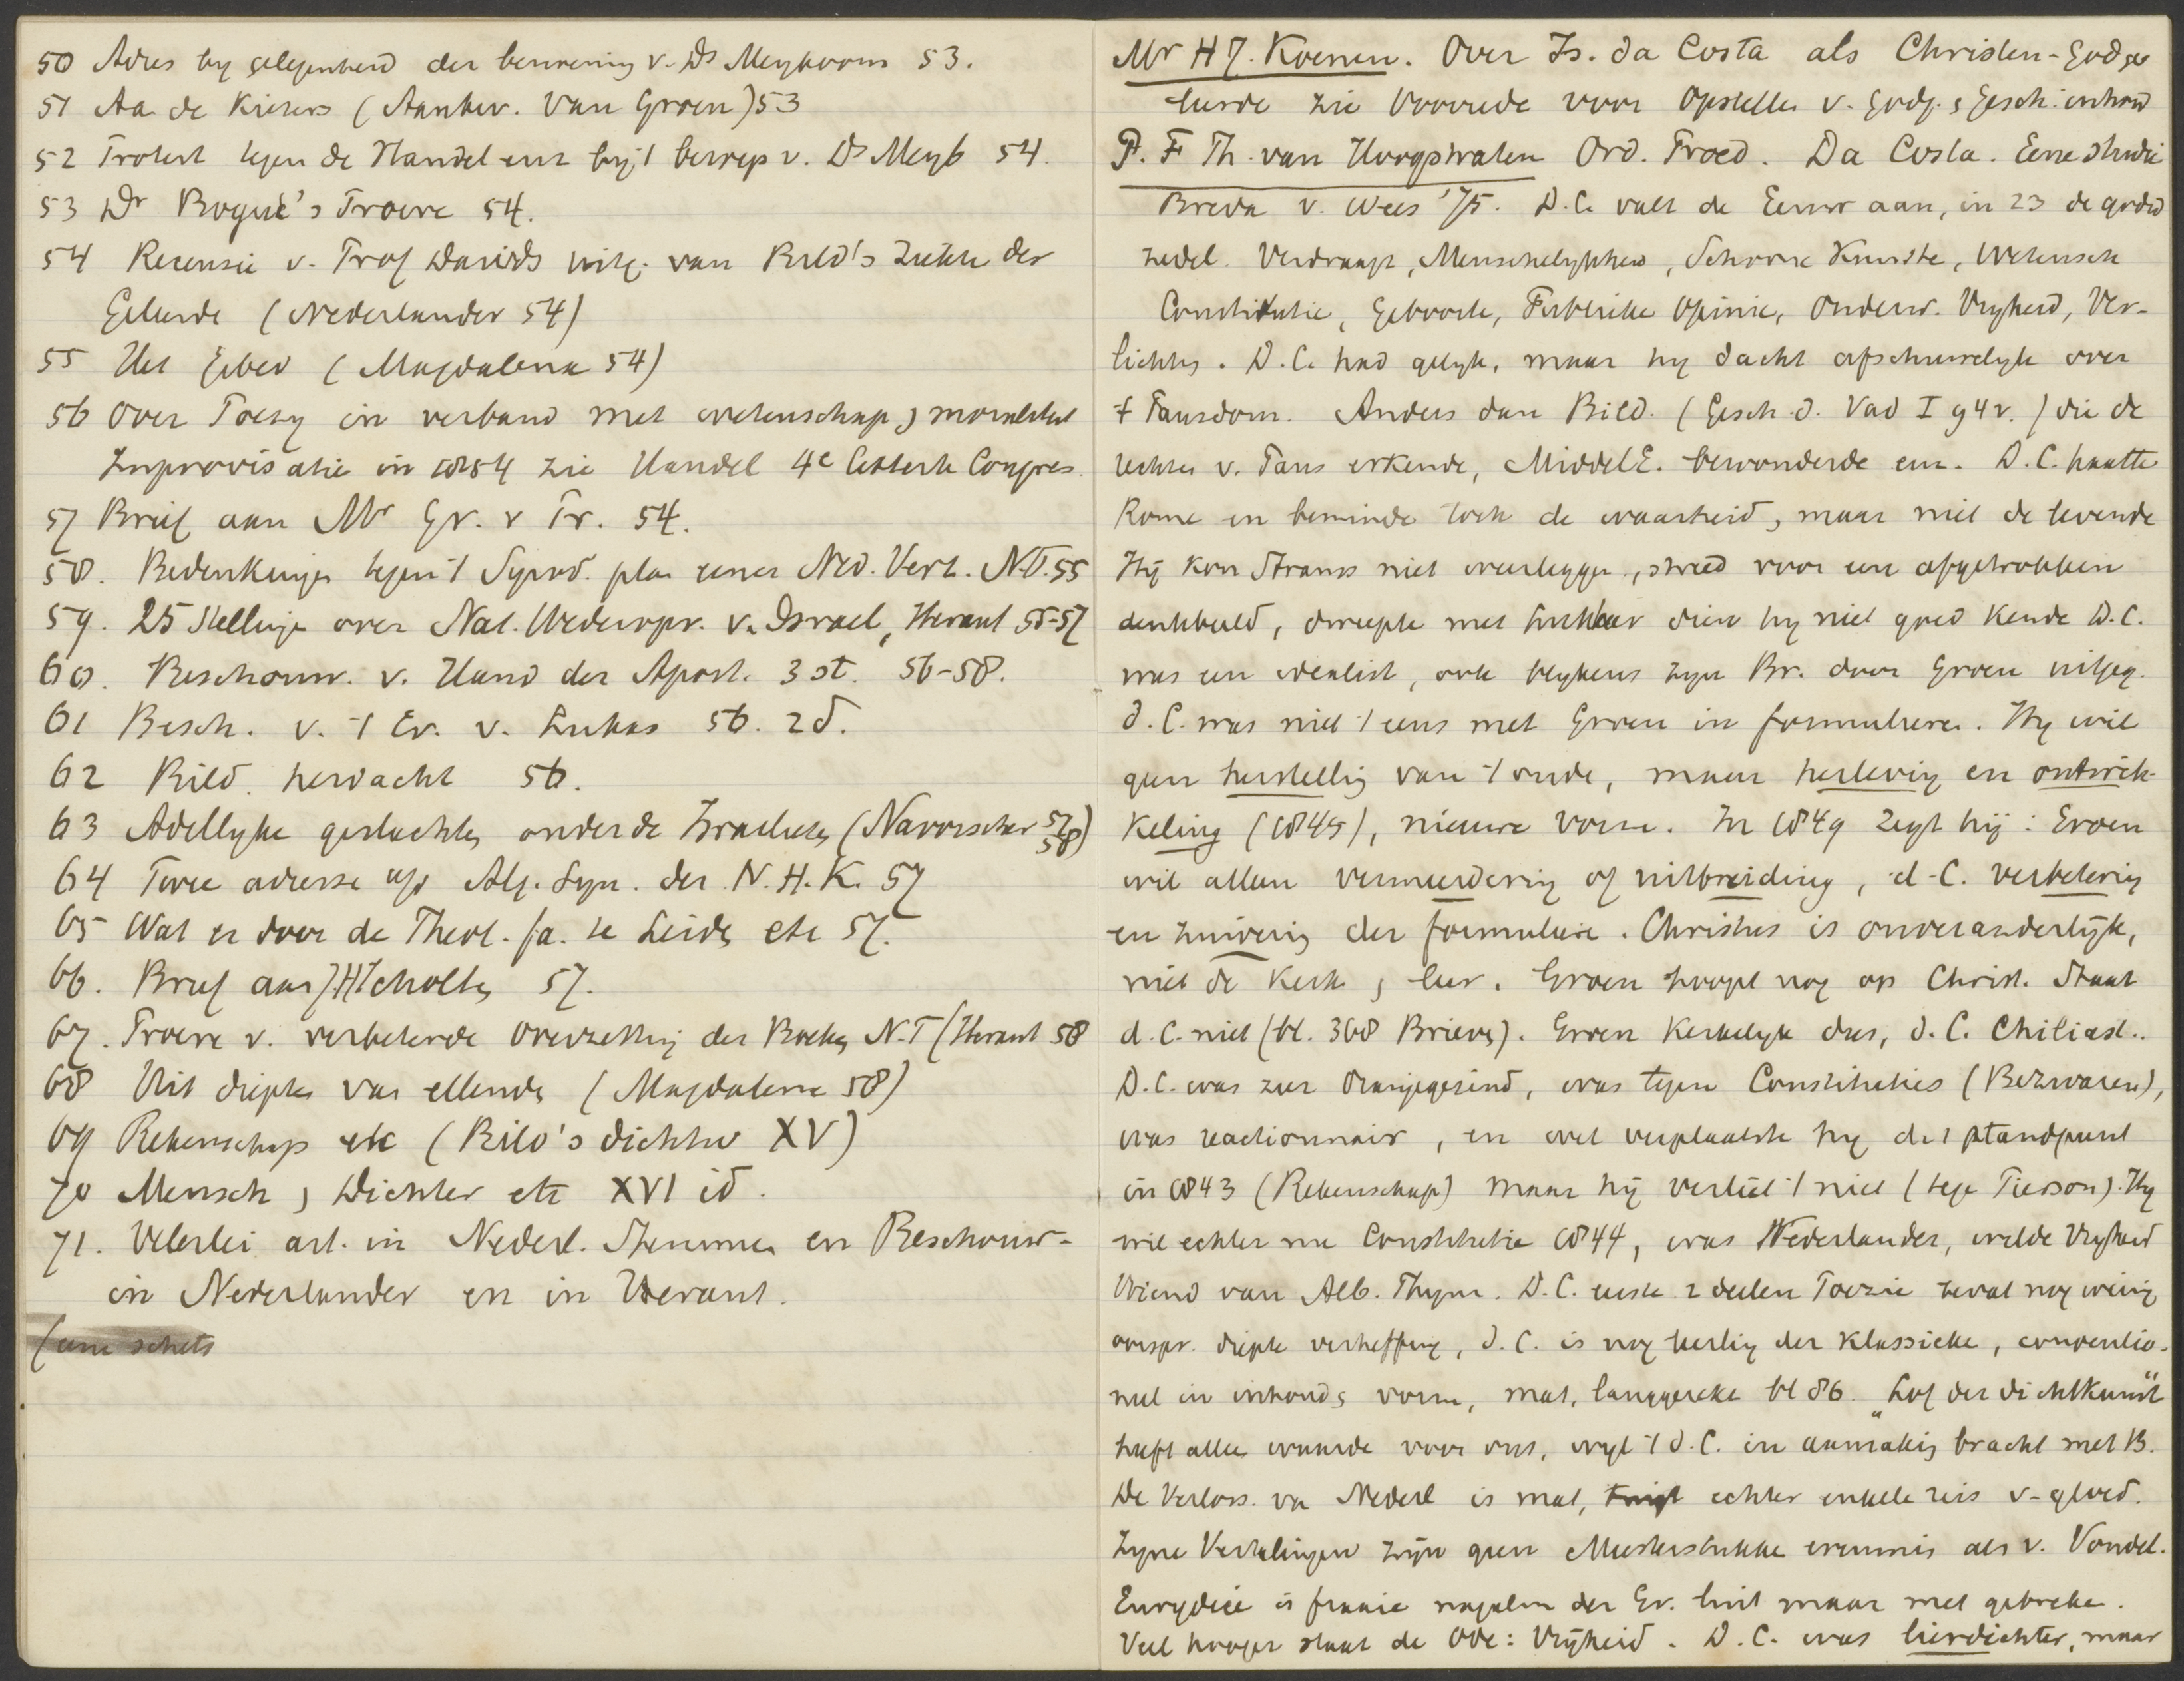 50 Adres by gelegenheid der benoeming v. Ds Meyboom 53.
51 Aa de Kiezers (Aanbev. Van Groen) 53
52 Protest tegen de Handel enz bij 't beroep v. Ds Meyb 54.
53 Dr Bogue's Proeve 54.
54 Recensie v. Prof Davids uitg. van Bild's Ziekte der
Geleerde (Nederlander 54)
55 Het Gebed (Magdalena 54)
56 Over Poezy in verband met wetenschap,
Improvisatie in 1854 zie Handel 4e Letterk Congres.
57 Brief aan Mr Gr. v Pr. 54.
58. Bedenkingen tegen 't Synod. plan eener Ned. Vert. N.T. 55
59. 25 Stellingen over Nat. Wederopr. v. Israel, Heraut 55-57
60. Beschouw. v. Hand der Apost. 3 st. 56-58.
61 Besch. v. 't Ev. v. Lukas 56. 2d.
62 Bild. herdacht 56.
63 Adellyke geslachten onder de Israelieten (Navorscher 57 58)
64 Twee adresse a/d Alg. Syn. der N.H.K. 57
65 Wat er door de Theol. fa. te Leiden etc 57.
66. Brief aan JH Scholten 57.
67. Proeve v. verbeterde Overzetting der Boeken N.T (Heraut 58
68 Uit diepten van ellende (Magdalena 58)
69 Rekenschap etc (Bild's dichtw XV)
70 Mensch, Dichter etc XVI id.
71. Velerlei art. in Nederl. Stemmen en Beschouw-
in Nederlander en in Heraut.
(eene schets
Mr HJ. Koenen. Over Is. da Costa als Christen-Godge
leerde zie Voorrede voor Opstellen v. godg. & gesch. inhoud
P. F Th. van Hoogstraten Ord. Praed. Da Costa. Eene studie
Breda v. Wees '75. D.C. valt de Eeuw aan, in 23 de godsd
zedel. Verdraagz, Menschelykheid, Schoone Kunste, Wetensch
Constitutie, Geboorte, Publieke Opinie, Onderw. Vryheid, Ver-
lichting. D.C. had gelyk, maar hy dacht afschuwelyk over
't Pausdom. Anders dan Bild. (Gesch. d. Vad I 94v.) die de
rechten v. Paus erkende, MiddelE. bewonderde enz. D.C. haatte
Rome en beminde toch de waarheid, maar niet de levende
Hij kon Strauss niet weerleggen, streed voor een afgetrokken
denkbeeld, dweepte met Luther dien hy niet goed kende D.C.
was een idealist, ook blykens zyn Br. door Groen uitgeg.
d.C. was niet 't eens met Groen in formulieren. Hy wil
geen herstelling van 't oude, maar herleving en ontwik-
keling (1845), nieuwe vorm. In 1849 zegt hij: Groen
wil alleen vermeerdering of uitbreiding, d.C. verbetering
en zuivering der formuliere. Christus is onveranderlijk,
niet de Kerk, leer. Groen hoopt nog op Christ. Staat
d.C. niet (bl. 368 Brieven). Groen Kerkelyk dus, d.C. Chiliast..
D.C. was zeer Oranjegezind, was tegen Constituties (Bezwaren),
was reactionnair, en wel verplaatste hy dat standpunt
in 1843 (Rekenschap) maar hij verliet 't niet (tegen Pierson). Hy
wil echter nu Constitutie 1844, was Nederlander, wilde Vryheid
Vriend van Alb. Thym. D.C. eerste 2 deelen Poezie bevat nog weinig
oorspr. diepte verheffing, d.C. is nog leerling der klassieke, conventio-
neel in inhoud & vorm, mat, langgerekt bl 86. „Lof der dichtkunst"
heeft alleen waarde voor ons, wyl 't d.C. in aanraking bracht met B.
De Verloss. va Nederl is mat, echter enkele reis v. gloed.
Zyne Vertalingen zijn geen Meesterstukke evenmin als v. Vondel.
Eurydice is fraaie der Gr. maar met gebreken.
Veel hooger staat de Ode: Vrijheid. D.C. was lierdichter, maar